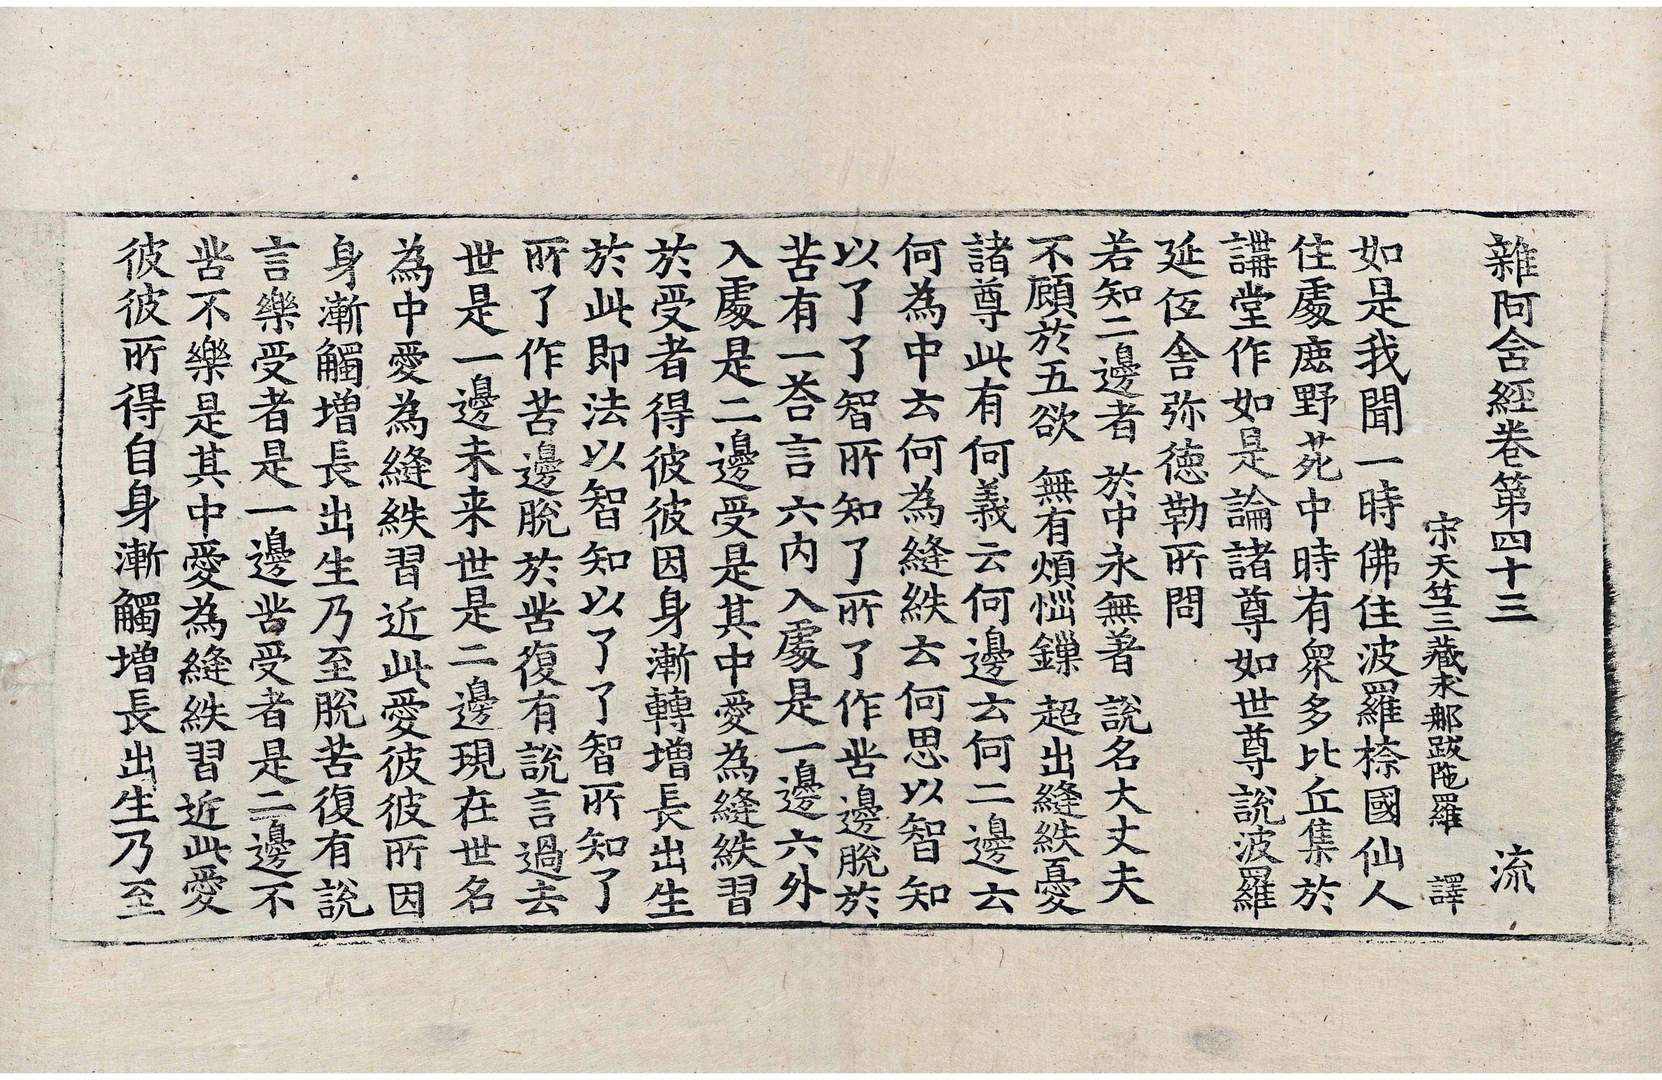 雜阿含經卷第四十三　流
宋天竺三藏求那跋陁羅　譯
如是我聞一時佛住波羅㮈國仙人
住處鹿野苑中時有衆多比丘集於
講堂作如是論諸尊如世尊說波羅
延低舍弥德勒所問
若知二邊者　於中永無著　說名大丈夫
不顧於五欲　無有煩惱鏁　超出縫紩憂
諸尊此有何義云何邊云何二邊云
何為中云何為縫紩云何思以智知
以了了智所知了所了作苦邊脫於
苦有一荅言六內入處是一邊六外
入處是二邊受是其中愛為縫紩習
於受者得彼彼因身漸轉增長出生
於此即法以智知以了了智所知了
所了作苦邊脫於苦復有說言過去
世是一邊未来世是二邊現在世名
為中愛為縫紩習近此愛彼彼所因
身漸觸增長出生乃至脫苦復有說
言樂受者是一邊苦受者是二邊不
苦不樂是其中愛為縫紩習近此愛
彼彼所得自身漸觸增長出生乃至